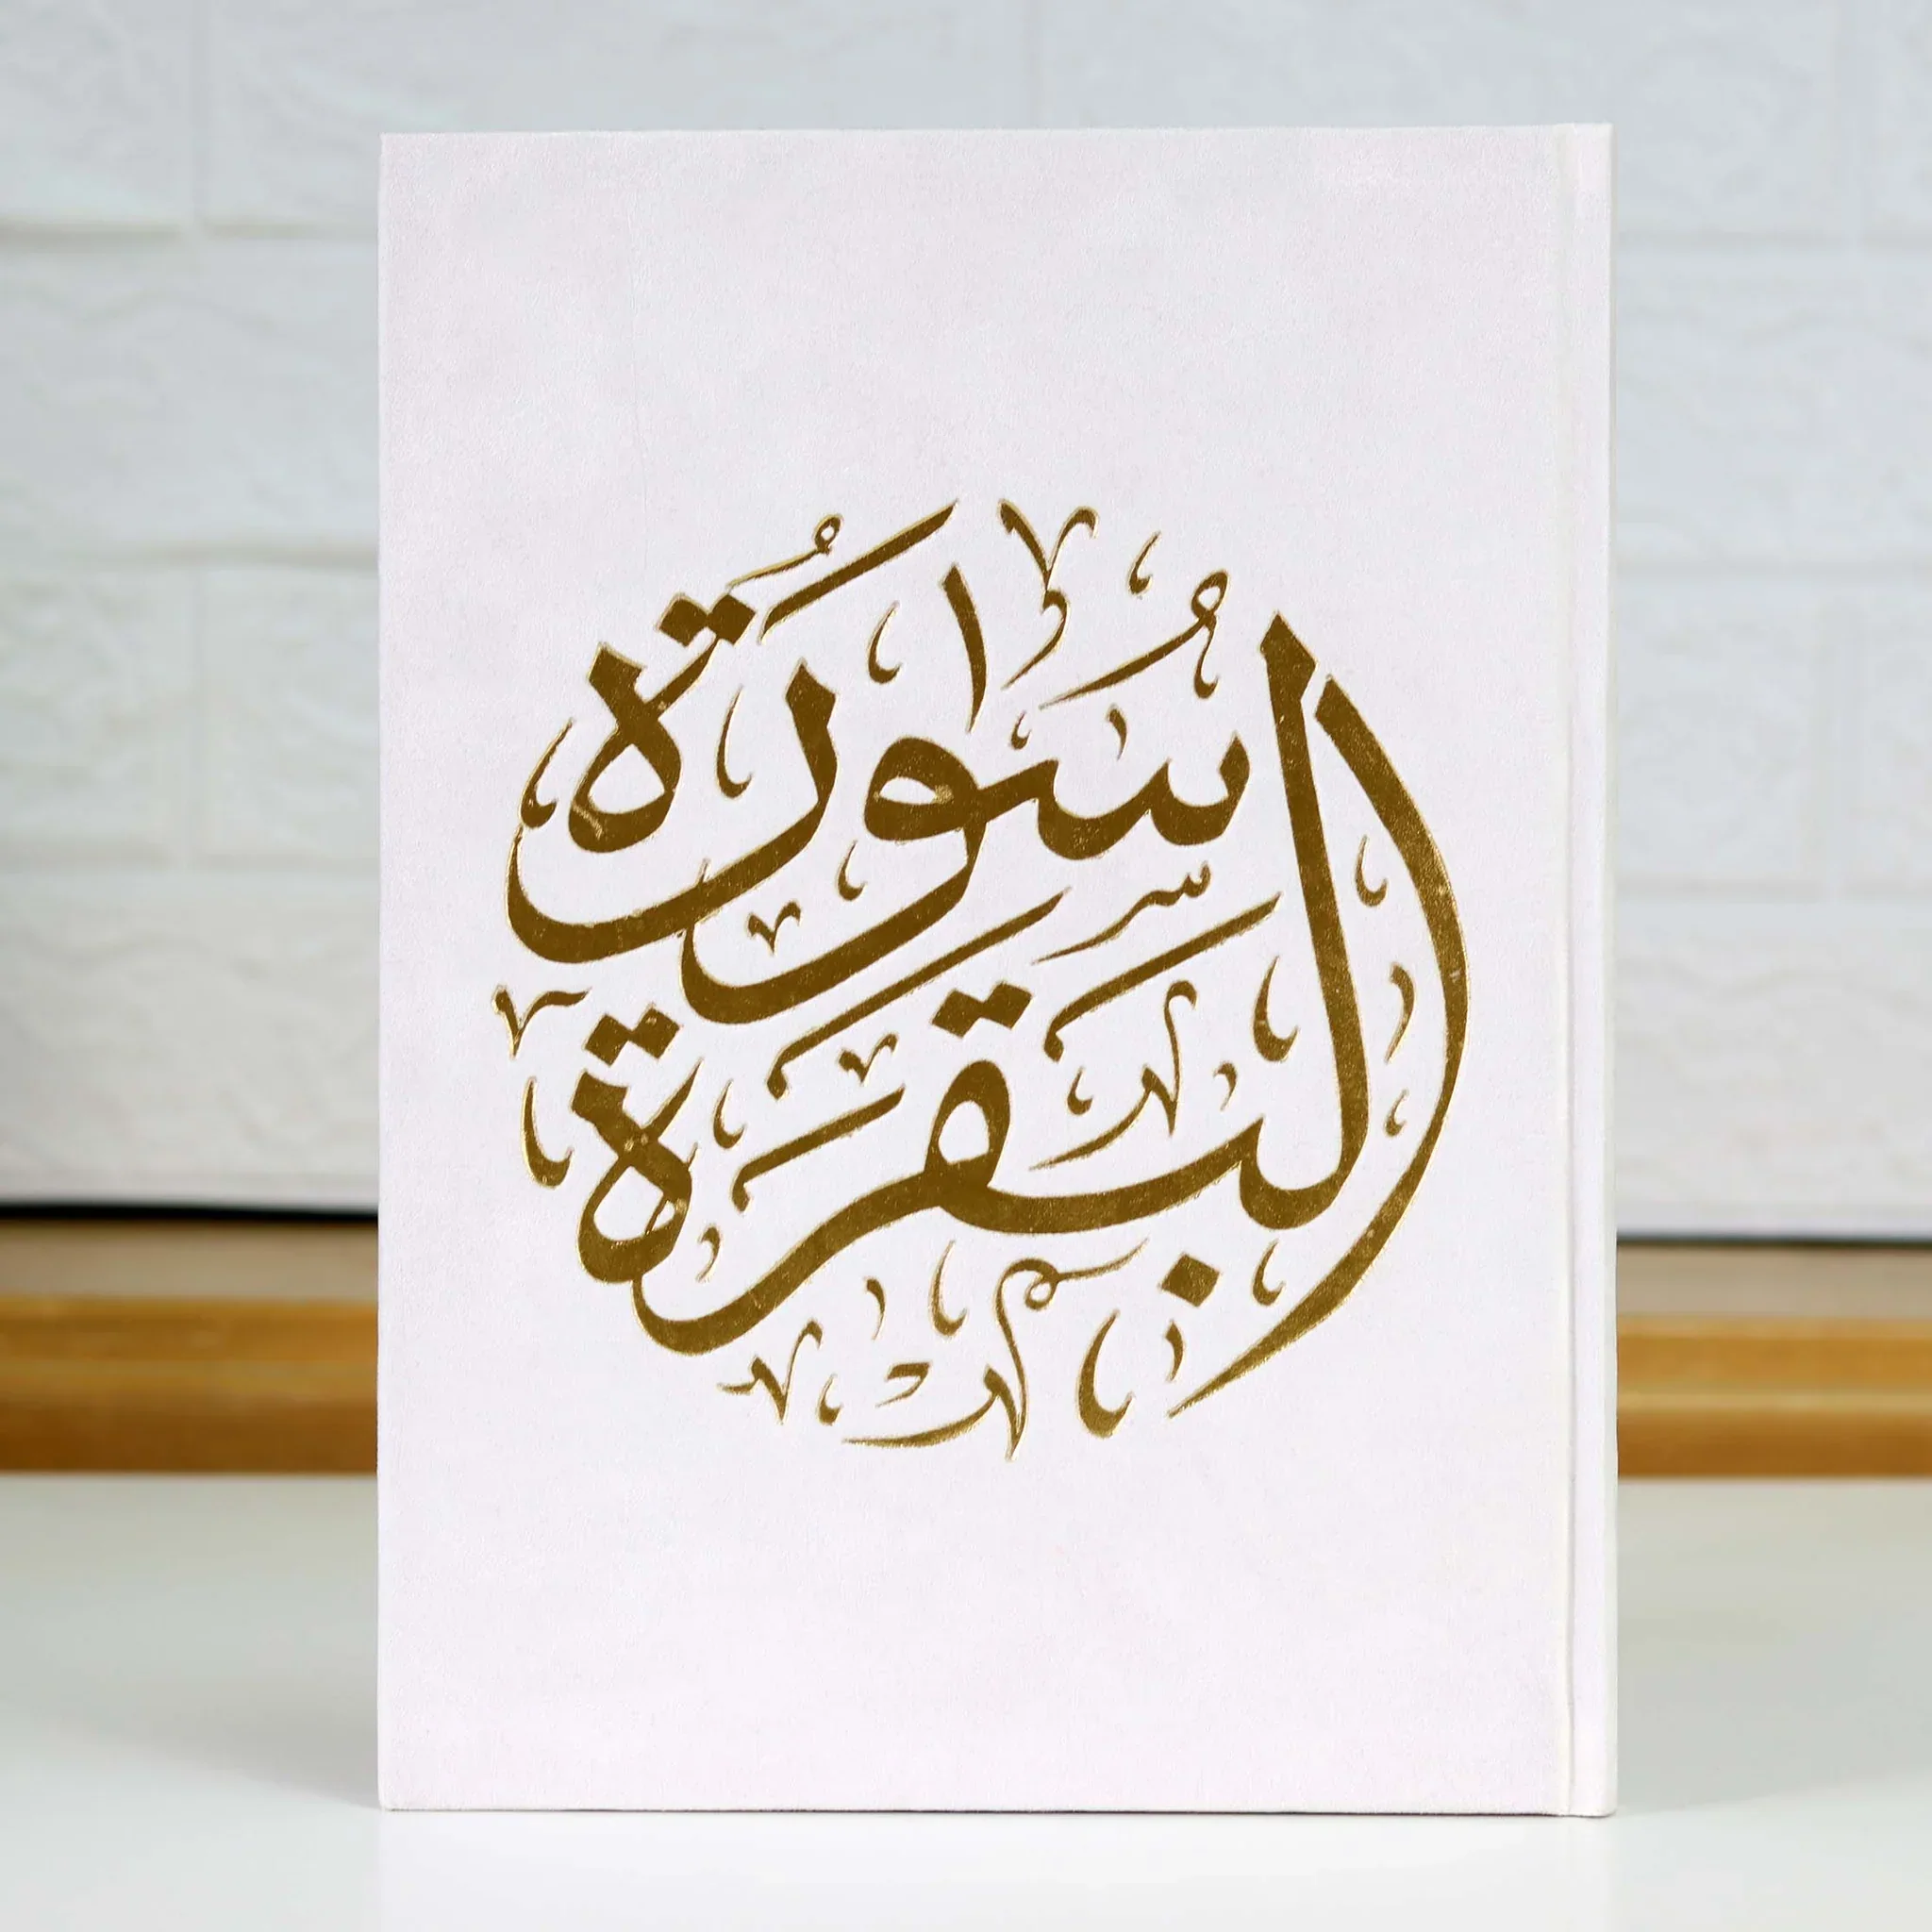 سُورَة
البقرة